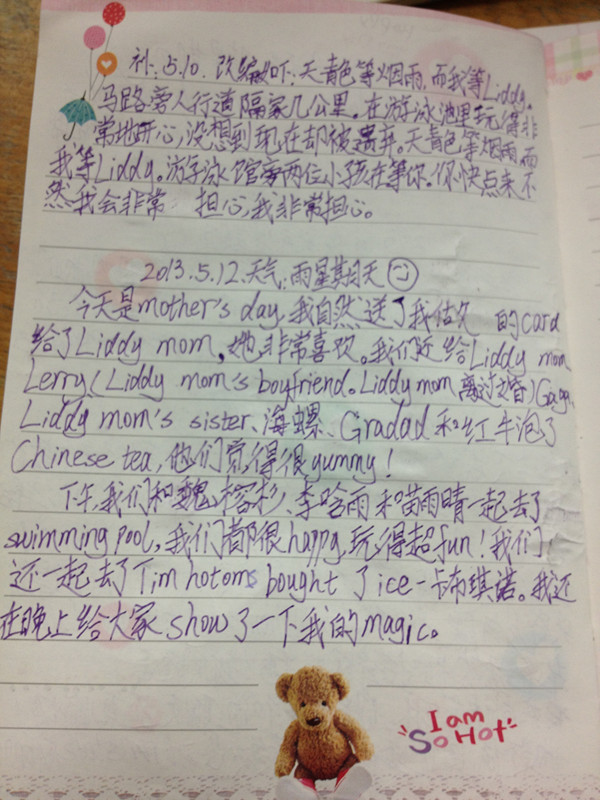 补.5.10.改编如下:天青色等烟雨,而我等Liddy。
马路旁人行道隔家几公里。在游泳池里玩得非
常地开心,没想到现在却被遗弃。天青色等烟雨而
我等Liddy。游泳馆旁两位小孩在等你。你快点来不
然我会非常 担心,我非常担心。
2013.5.12.天气:雨星期天
今天是mother's day,我自然送了我 的card
给了Liddy mom。她非常喜欢。我们还给Liddy mom
Lerry(Liddy mom's boyfriend。Liddy mom离过婚)Gaga
Liddy mom's sister、海螺、Gradad和红牛泡了
Chinese tea,他们觉得很yummy!
下午,我们和魏榕杉、李晗雨和苗雨晴一起去了
swimming pool,我们都很happy,玩得超fun!我们
还一起去了Tim hotoms bought了ice-卡布琪诺。我还
在晚上给大家show了一下我的magic。
I am
So Hot